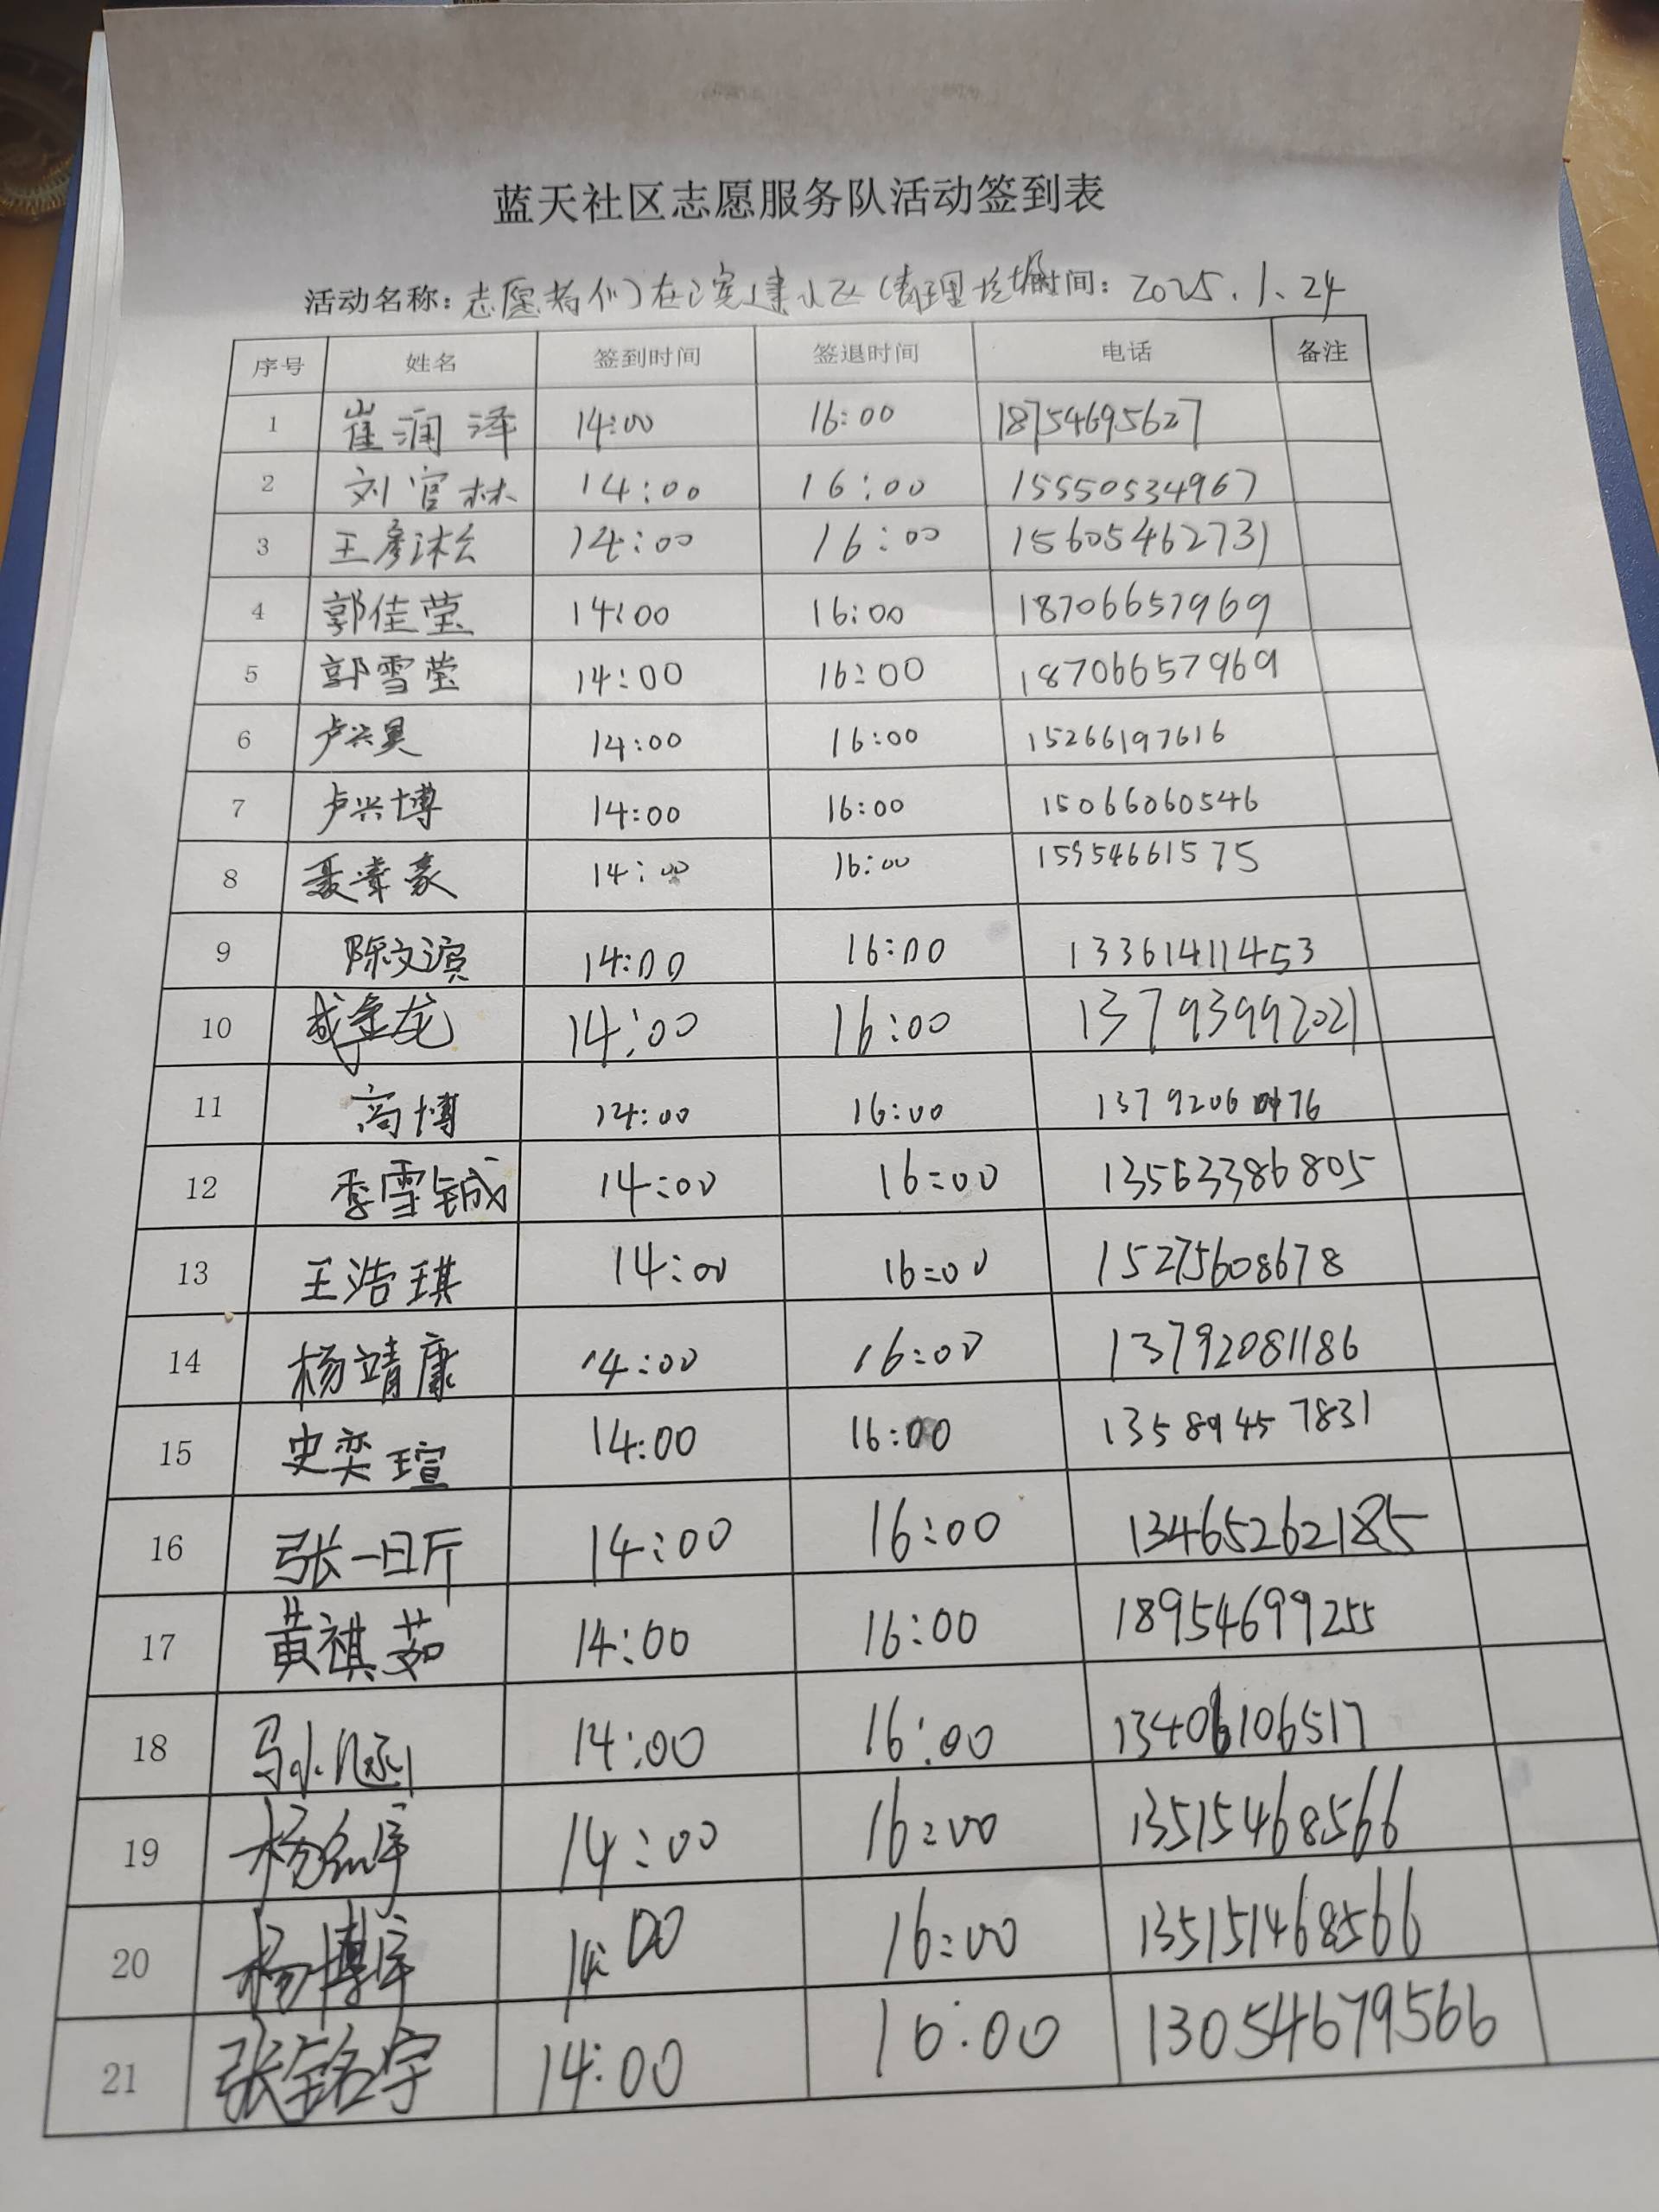 蓝天社区志愿服务队活动签到表
活动名称：志愿者们在滨建小区清理垃圾 时间：2025.1.24
序号 姓名 签到时间 签退时间 电话 备注
1 崔润泽 14:00 16:00 18754695627
2 刘官林 14:00 16:00 15550534967
3 王彦沐 14:00 16:00 15605462731
4 郭佳莹 14:00 16:00 18706657969
5 郭雪莹 14:00 16:00 18706657969
6 卢兴昊 14:00 16:00 15266197616
7 卢兴博 14:00 16:00 15066060546
8 聂 豪 14:00 16:00 15954661575
9 陈文滨 14:00 16:00 13361411453
10 龙 14:00 16:00 13793992021
11 商博 14:00 16:00
12 季雪铖 14:00 16:00 13563386805
13 王浩琪 14:00 16:00 15275608678
14 杨靖康 14:00 16:00 13792081186
15 史奕瑄 14:00 16:00 13589457831
16 张一昕 14:00 16:00 13465262185
17 黄祺茹 14:00 16:00 18954699255
18 马小涵 14:00 16:00 13406106517
19 杨 宇 14:00 16:00 13515468566
20 杨博宇 14:00 16:00 135151468566
21 张铭宇 14:00 16:00 13054679566